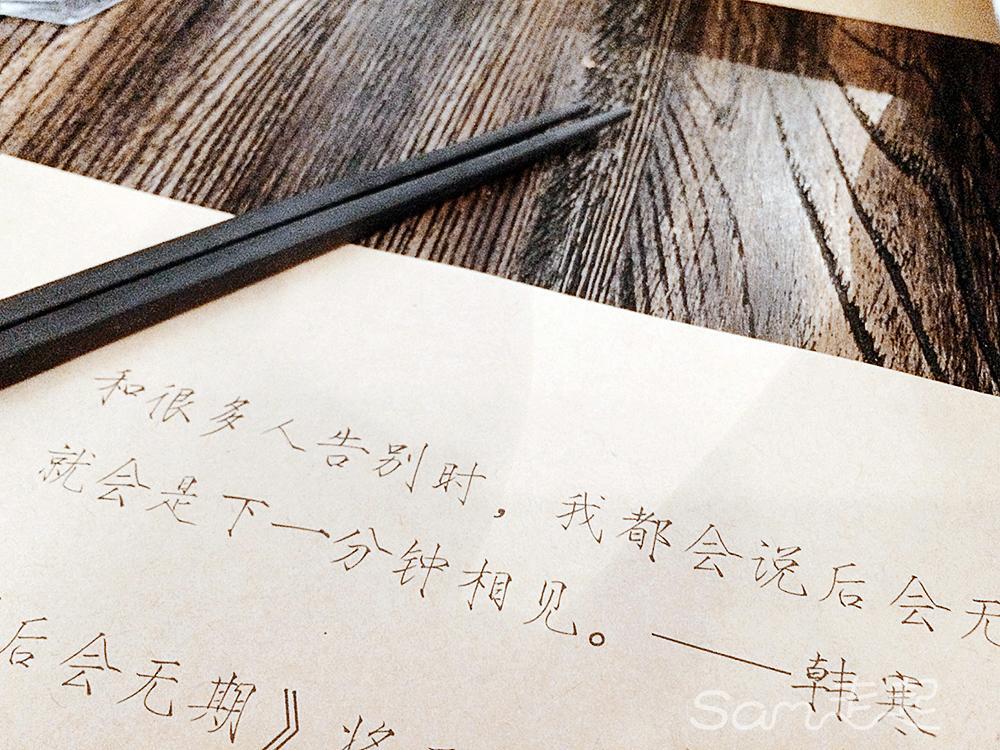 和很多人告别时，我都会说后会无
就会是下一分钟相见。——韩寒
后会无期》将